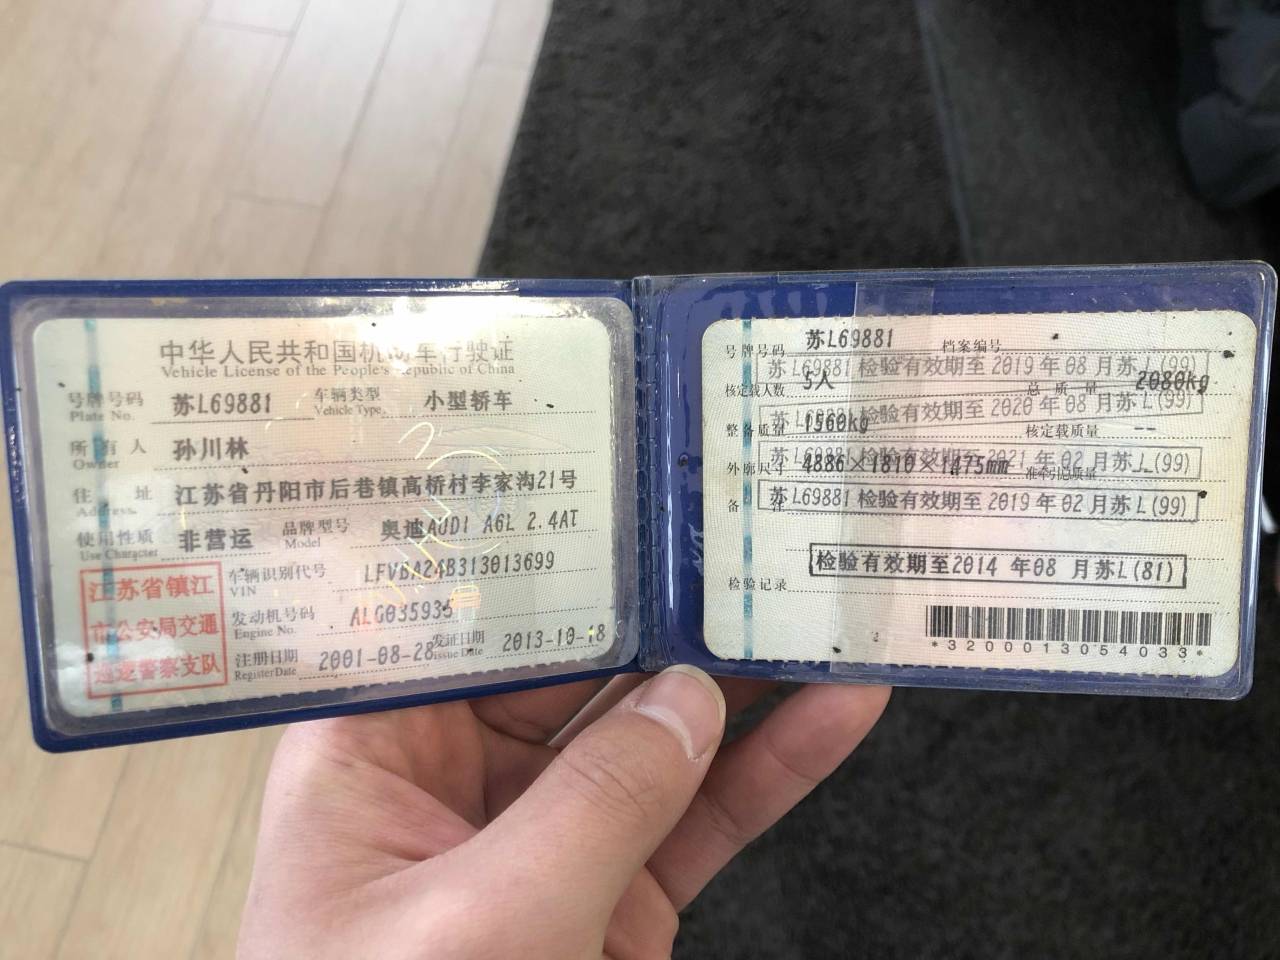 中华人民共和国机动车行驶证
Vehicle License of the People's Republic of China
号牌号码 苏L69881 车辆类型 小型轿车
Plate No. Vehicle Type
所有人 孙川林
Owner
住址 江苏省丹阳市后巷镇高桥村李家沟21号
Address
使用性质 非营运 品牌型号 奥迪AUDI A6L 2.4AT
Use Character Model
江苏省镇江
市公安局交通
巡逻警察支队
车辆识别代号 LFVBA24B313013699
VIN
发动机号码 ALG035935
Engine No.
注册日期 2001-08-28 发证日期 2013-10-18
Register Date Issue Date
号牌号码 苏L69881 档案编号
苏L69881 检验有效期至 2019 年 08 月苏 L(99)
核定载人数 5人 总质量 2080kg
苏L69881 检验有效期至 2020 年 08 月苏 L(99)
整备质量 1560kg 核定载质量 --
苏L69881 检验有效期至 2021 年 02 月苏 L(99)
外廓尺寸 4886×1810×1475mm 准牵引总质量 --
备注 苏L69881 检验有效期至 2019 年 02 月苏 L(99)
检验有效期至2014 年08 月苏L(81)
检验记录
*3200013054033*